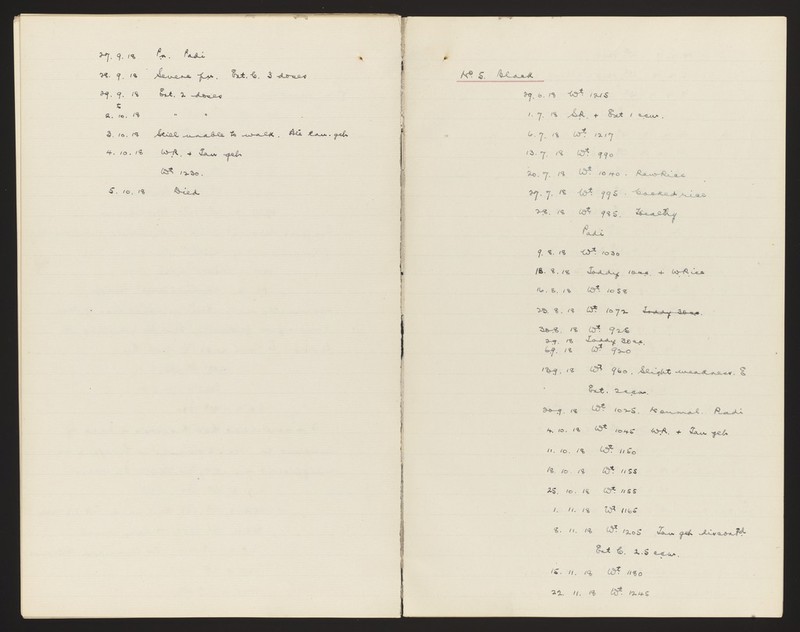 27. 9. 18 Pn. Padi
28. 9. 18 Severe pn. Ext. C. 3 doses
29. 9. 18 Ext. 2 doses
5
2. 10. 18 " "
3. 10. 18 Still unable to walk.
4. 10. 18 WR. + Tau geh
Wt 1230.
5. 10. 18 Died
No 5. Black
Wt 1215
1. 7. 18 SR. + Ext 1 ccm.
6. 7. 18 Wt. 1217
13. 7. 18 Wt. 990
20. 7. 18 Wt. 1040. Raw Rice
27. 7. 18 Wt 995
28. 18 Wt 985. Healthy
Padi
9. 8. 18 Wt. 1030
18. 8. 18 Toddy + W Rice
16. 8. 18 Wt. 1058
23. 8. 18 Wt. 1072 Toddy 30
30. 8. 18 Wt 926
2. 9. 18 Toddy 30
6. 9. 18 Wt 920
13. 9. 18 Wt 960. Slight weakness. C
Ext. 2 ccm.
20. 9. 18 Wt. 1025. Normal. Padi
4. 10. 18 Wt 1045 WR. + Tau geh
11. 10. 18 Wt. 1150
18. 10. 18 Wt 1155
25. 10. 18 Wt 1155
1. 11. 18 Wt 1165
8. 11. 18 Wt. 1205 Tau geh
Ext C. 2.5 ccm.
15. 11. 18 Wt. 1180
22 11. 18 Wt. 1245